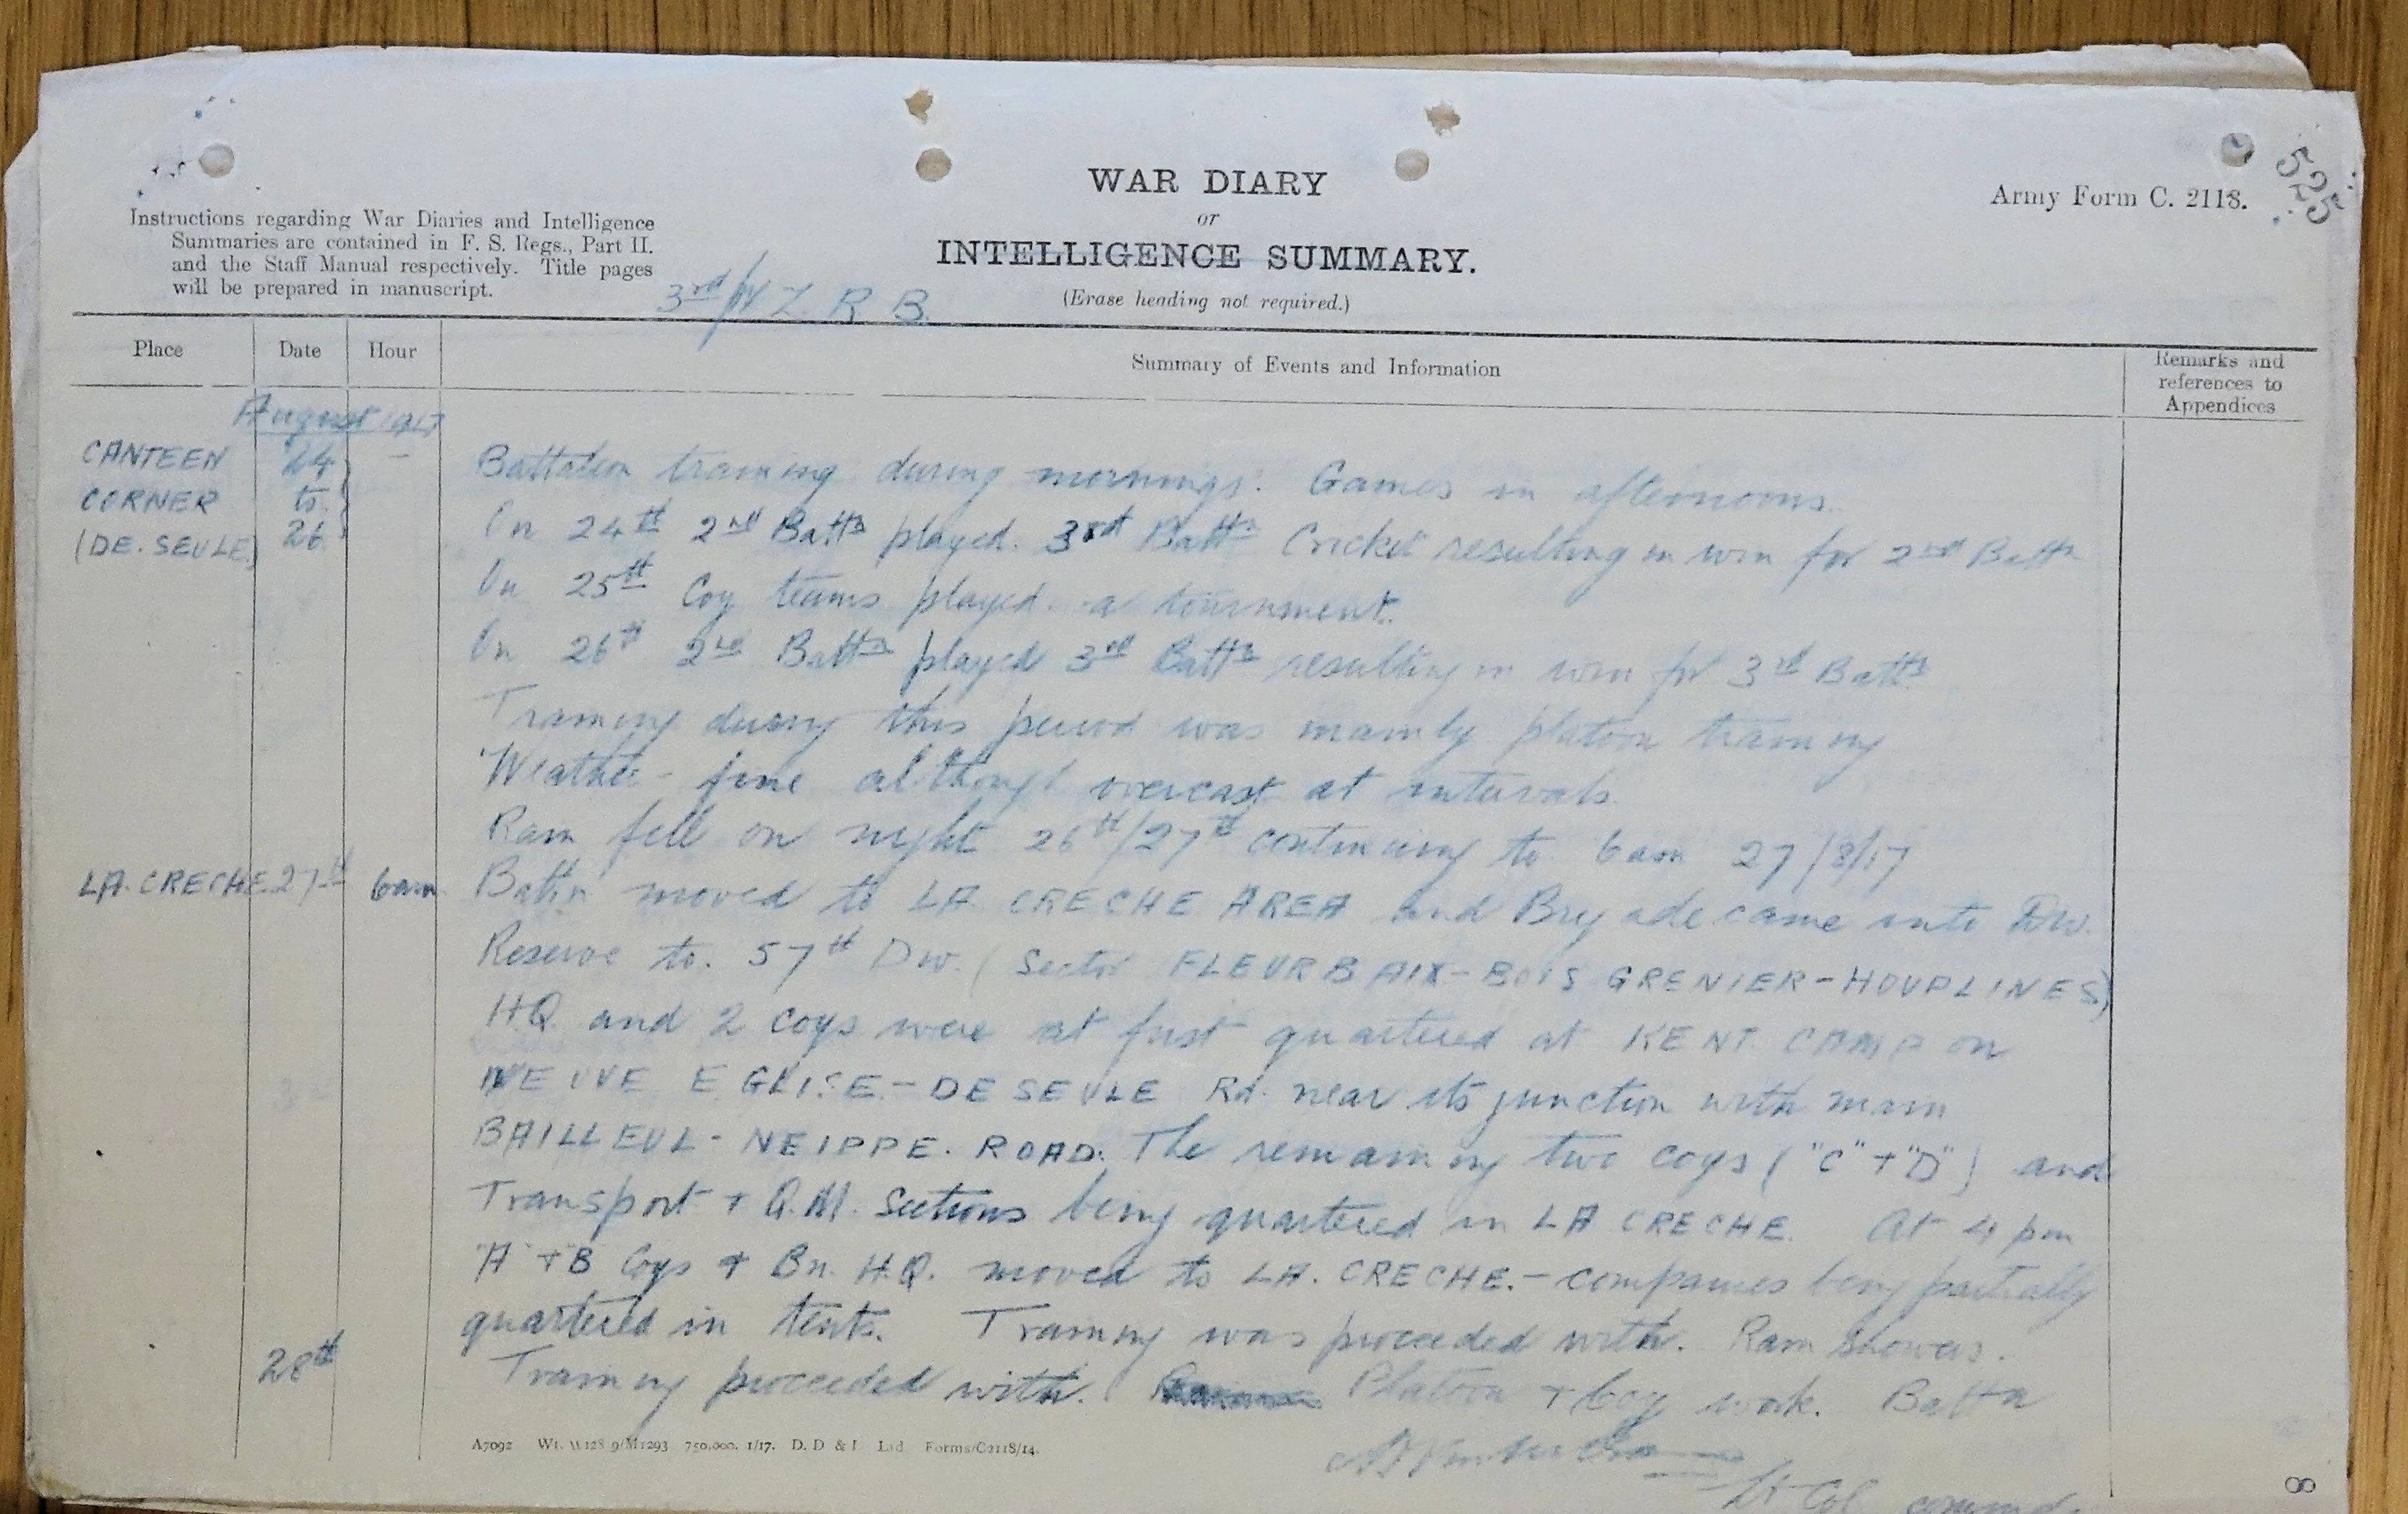 WAR DIARY
or
INTELLIGENCE SUMMARY.
(Erase heading not required.)
Army Form C. 2118.
525
Instructions regarding War Diaries and Intelligence
Summaries are contained in F. S. Regs., Part II.
and the Staff Manual respectively. Title pages
will be prepared in manuscript.
3rd/N Z. R B.
Place Date Hour Summary of Events and Information Remarks and references to Appendices
August 1917
CANTEEN 24 - Battalion training during mornings. Games in afternoons.
CORNER to On 24th 2nd Battn played. 3rd Battn Cricket resulting in win for 2nd Battn
(DE. SEULE) 26 On 25th Coy teams played a tournment.
On 26th 2nd Battn played 3rd Battn resulting in win for 3rd Battn
Training during this period was mainly platoon training
Weather - fine although overcast at intervals.
Rain fell on night 26th/27th continuing to 6 am 27/8/17
LA. CRECHE 27th 6am Battn moved to LA CRECHE AREA and Brigade came into Div.
Reserve to. 57th Div. (Sector FLEURBAIX-BOIS GRENIER-HOUPLINES)
HQ and 2 coys were at first quartered at KENT CAMP on
NEUVE EGLISE-DE SEULE Rd. near its junction with main
BAILLEUL- NEIPPE. ROAD. The remaining two coys ("C"+"D") and
Transport + Q.M. Sections being quartered in LA CRECHE. At 4 pm
"A"+B Coys + Bn. H.Q. moved to LA. CRECHE.- companies being partially
quartered in tents. Training was proceeded with. Rain showers.
28th Training proceeded with. Platoon + Coy work. Battn
A7092 Wt. W128 9/M1293 750,000. 1/17. D. D & L Ltd Forms/C2118/14.
Lt Col
8